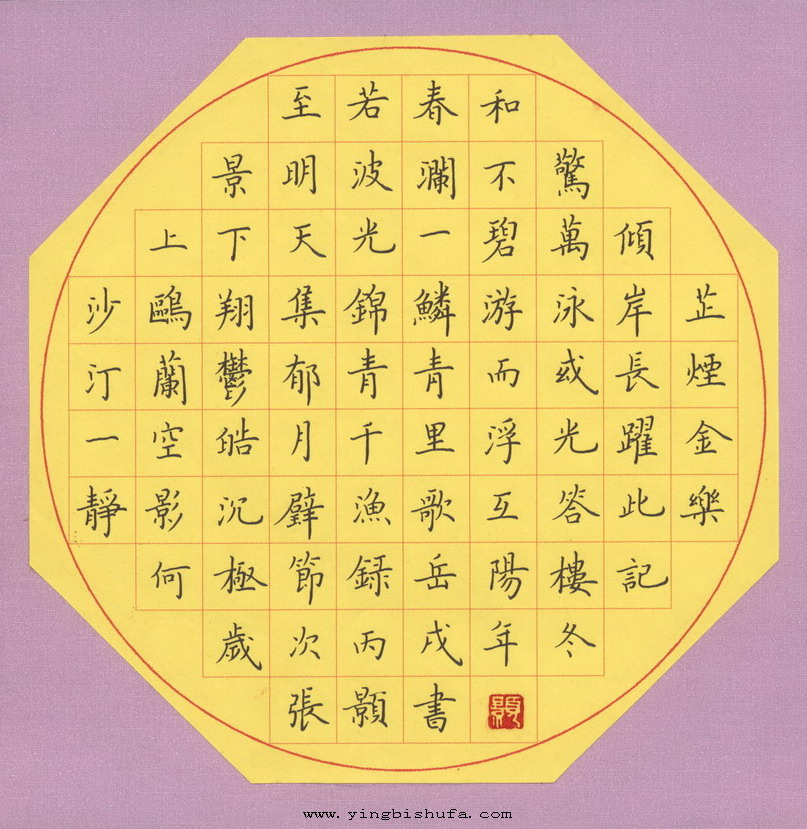 至若春和
景明波瀾不驚
上下天光一碧萬傾
沙鷗翔集錦鱗游泳岸芷
汀蘭鬱郁青青而或長煙
一空皓月千里浮光躍金
靜影沉璧漁歌互答此樂
何極節録岳陽樓記
歲次丙戌年冬
張顥書
www.yingbishufa.com